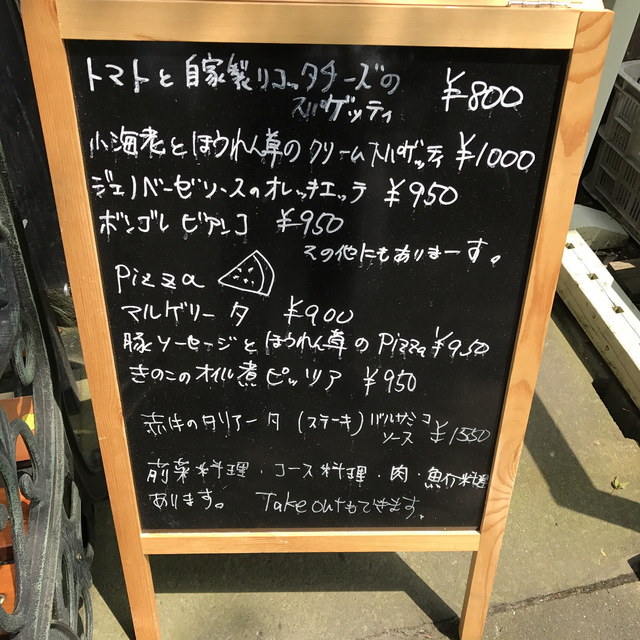 トマトと自家製リコッタチーズの
スパゲッティ ¥800
小海老とほうれん草のクリームスパゲッティ ¥1000
ジェノベーゼソースのオレッキエッテ ¥950
ボンゴレ ビアンコ ¥950
その他にもありまーす。
Pizza
マルゲリータ ¥900
豚ソーセージとほうれん草のPizza ¥950
きのこのオイル煮ピッツア ¥950
赤牛のタリアータ (ステーキ) バルサミコ
ソース ¥1550
前菜料理・コース料理・肉・魚介料理
あります。 Take outもできます。